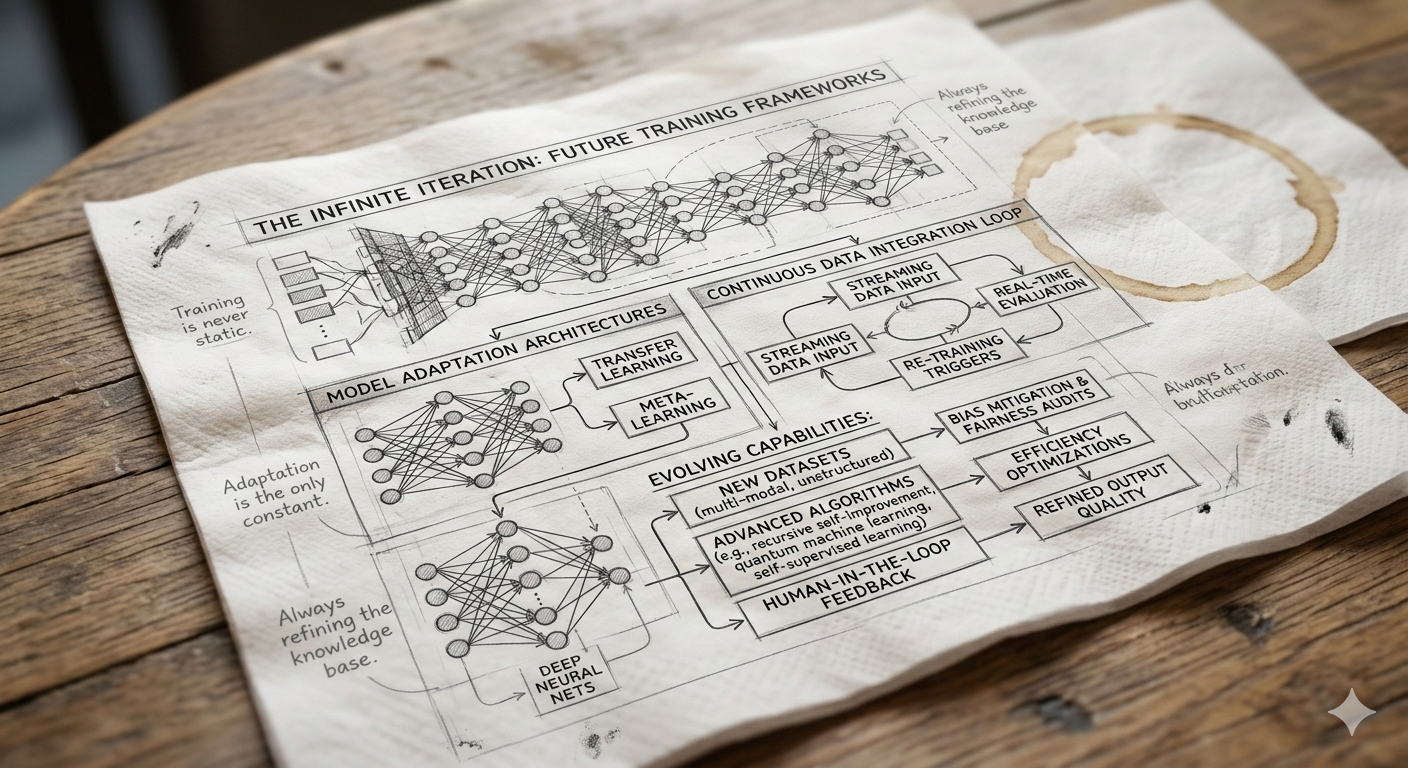 THE INFINITE ITERATION: FUTURE TRAINING FRAMEWORKS
Always
refining the
knowledge
base
Training
is never
static.
CONTINUOUS DATA INTEGRATION LOOP
STREAMING
DATA INPUT
REAL-TIME
EVALUATION
STREAMING
DATA INPUT
RE-TRAINING
TRIGGERS
MODEL ADAPTATION ARCHITECTURES
TRANSFER
LEARNING
META-
LEARNING
Adaptation
is the only
constant.
EVOLVING CAPABILITIES:
NEW DATASETS
(multi-modal, unstructured)
ADVANCED ALGORITHMS
(e.g., recursive self-improvement,
quantum machine learning,
self-supervised learning)
HUMAN-IN-THE-LOOP
FEEDBACK
BIAS MITIGATION &
FAIRNESS AUDITS
EFFICIENCY
OPTIMIZATIONS
REFINED OUTPUT
QUALITY
Always
Always
refining the
knowledge
base.
DEEP
NEURAL
NETS